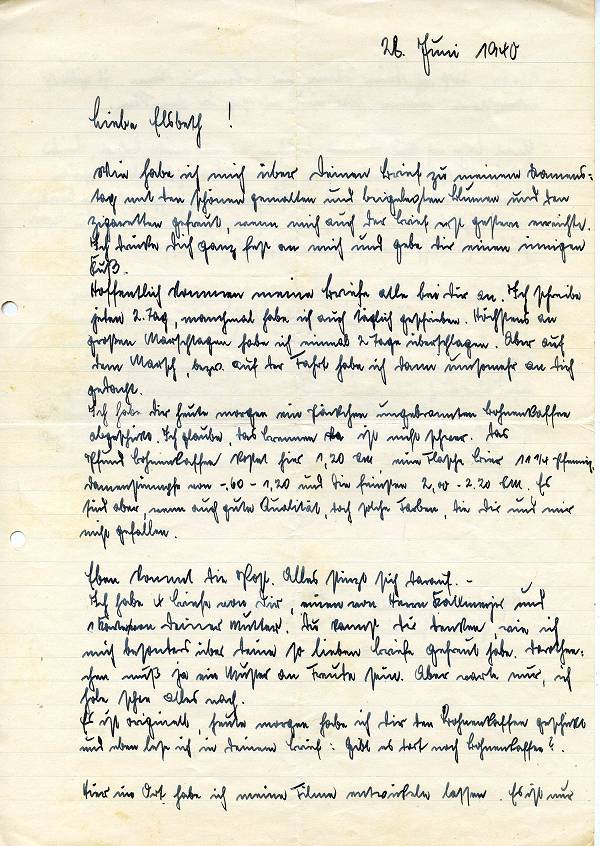 26. Juni 1940
Liebe Elsbeth!
Wie habe ich mich über Deinen Brief zu meinem Namens=
tag mit den schönen gemalten und beigelegten Blumen und den
Zigaretten gefreut, wenn mich auch der Brief erst gestern erreichte.
Ich drücke Dich ganz fest an mich und gebe dir einen innigen
Kuß.
Hoffentlich kommen meine Briefe alle bei Dir an. Ich schreibe
jeden 2. Tag, manchmal habe ich auch täglich geschrieben. Höchstens an
großen Marschtagen habe ich einmal 2 Tage überschlagen. Aber auf
dem Marsch, bezw. auf der Fahrt habe ich dann umsomehr an dich
gedacht.
Ich habe dir heute morgen ein Päckchen ungebrannten Bohnenkaffee
abgeschickt. Ich glaube, das brennen ist nicht schwer. Das
Pfund Bohnenkaffee kostet hier 1,20 RM, eine Flasche Bier 11 1/4 Pfennig,
Damenstrümpfe von -.60 - 1,20 und die feinsten 2,00 - 2.20 RM. Es
sind aber, wenn auch gute Qualität, doch solche Farben, die dir und mir
nicht gefallen.
Eben kommt die Post. Alles stürzt sich darauf. -
Ich habe 4 Briefe von Dir, einen von Herrn und
1 von Deiner Mutter. Du kannst dir denken, wie ich
mich besonders über deine so lieben Briefe gefreut habe. Dorothee=
chen muß ja ein Muster an Freude sein. Aber warte nur, ich
hole schon alles nach.
Es ist originell, heute morgen habe ich dir den Bohnenkaffee geschickt
und eben lese ich in deinem Brief: Gibt es dort noch Bohnenkaffee?.
Hier im Ort habe ich meine Filme entwickeln lassen. Es ist nur